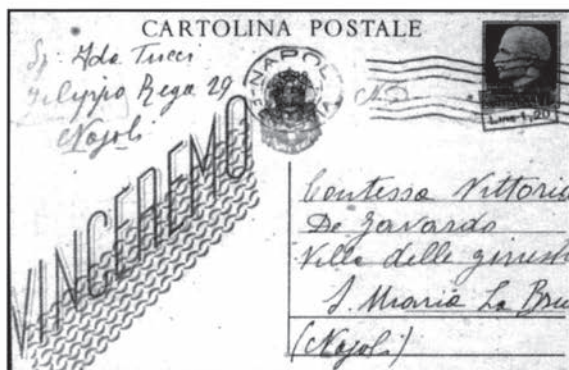 CARTOLINA POSTALE
Sp. Ada Tucci
Filippo Rega 29
Napoli
NAPOLI
VINCEREMO
Lire 1,20
Contessa Vittoria
De Zavardo
Villa delle ginest
S. Maria La Bru
(Napoli)